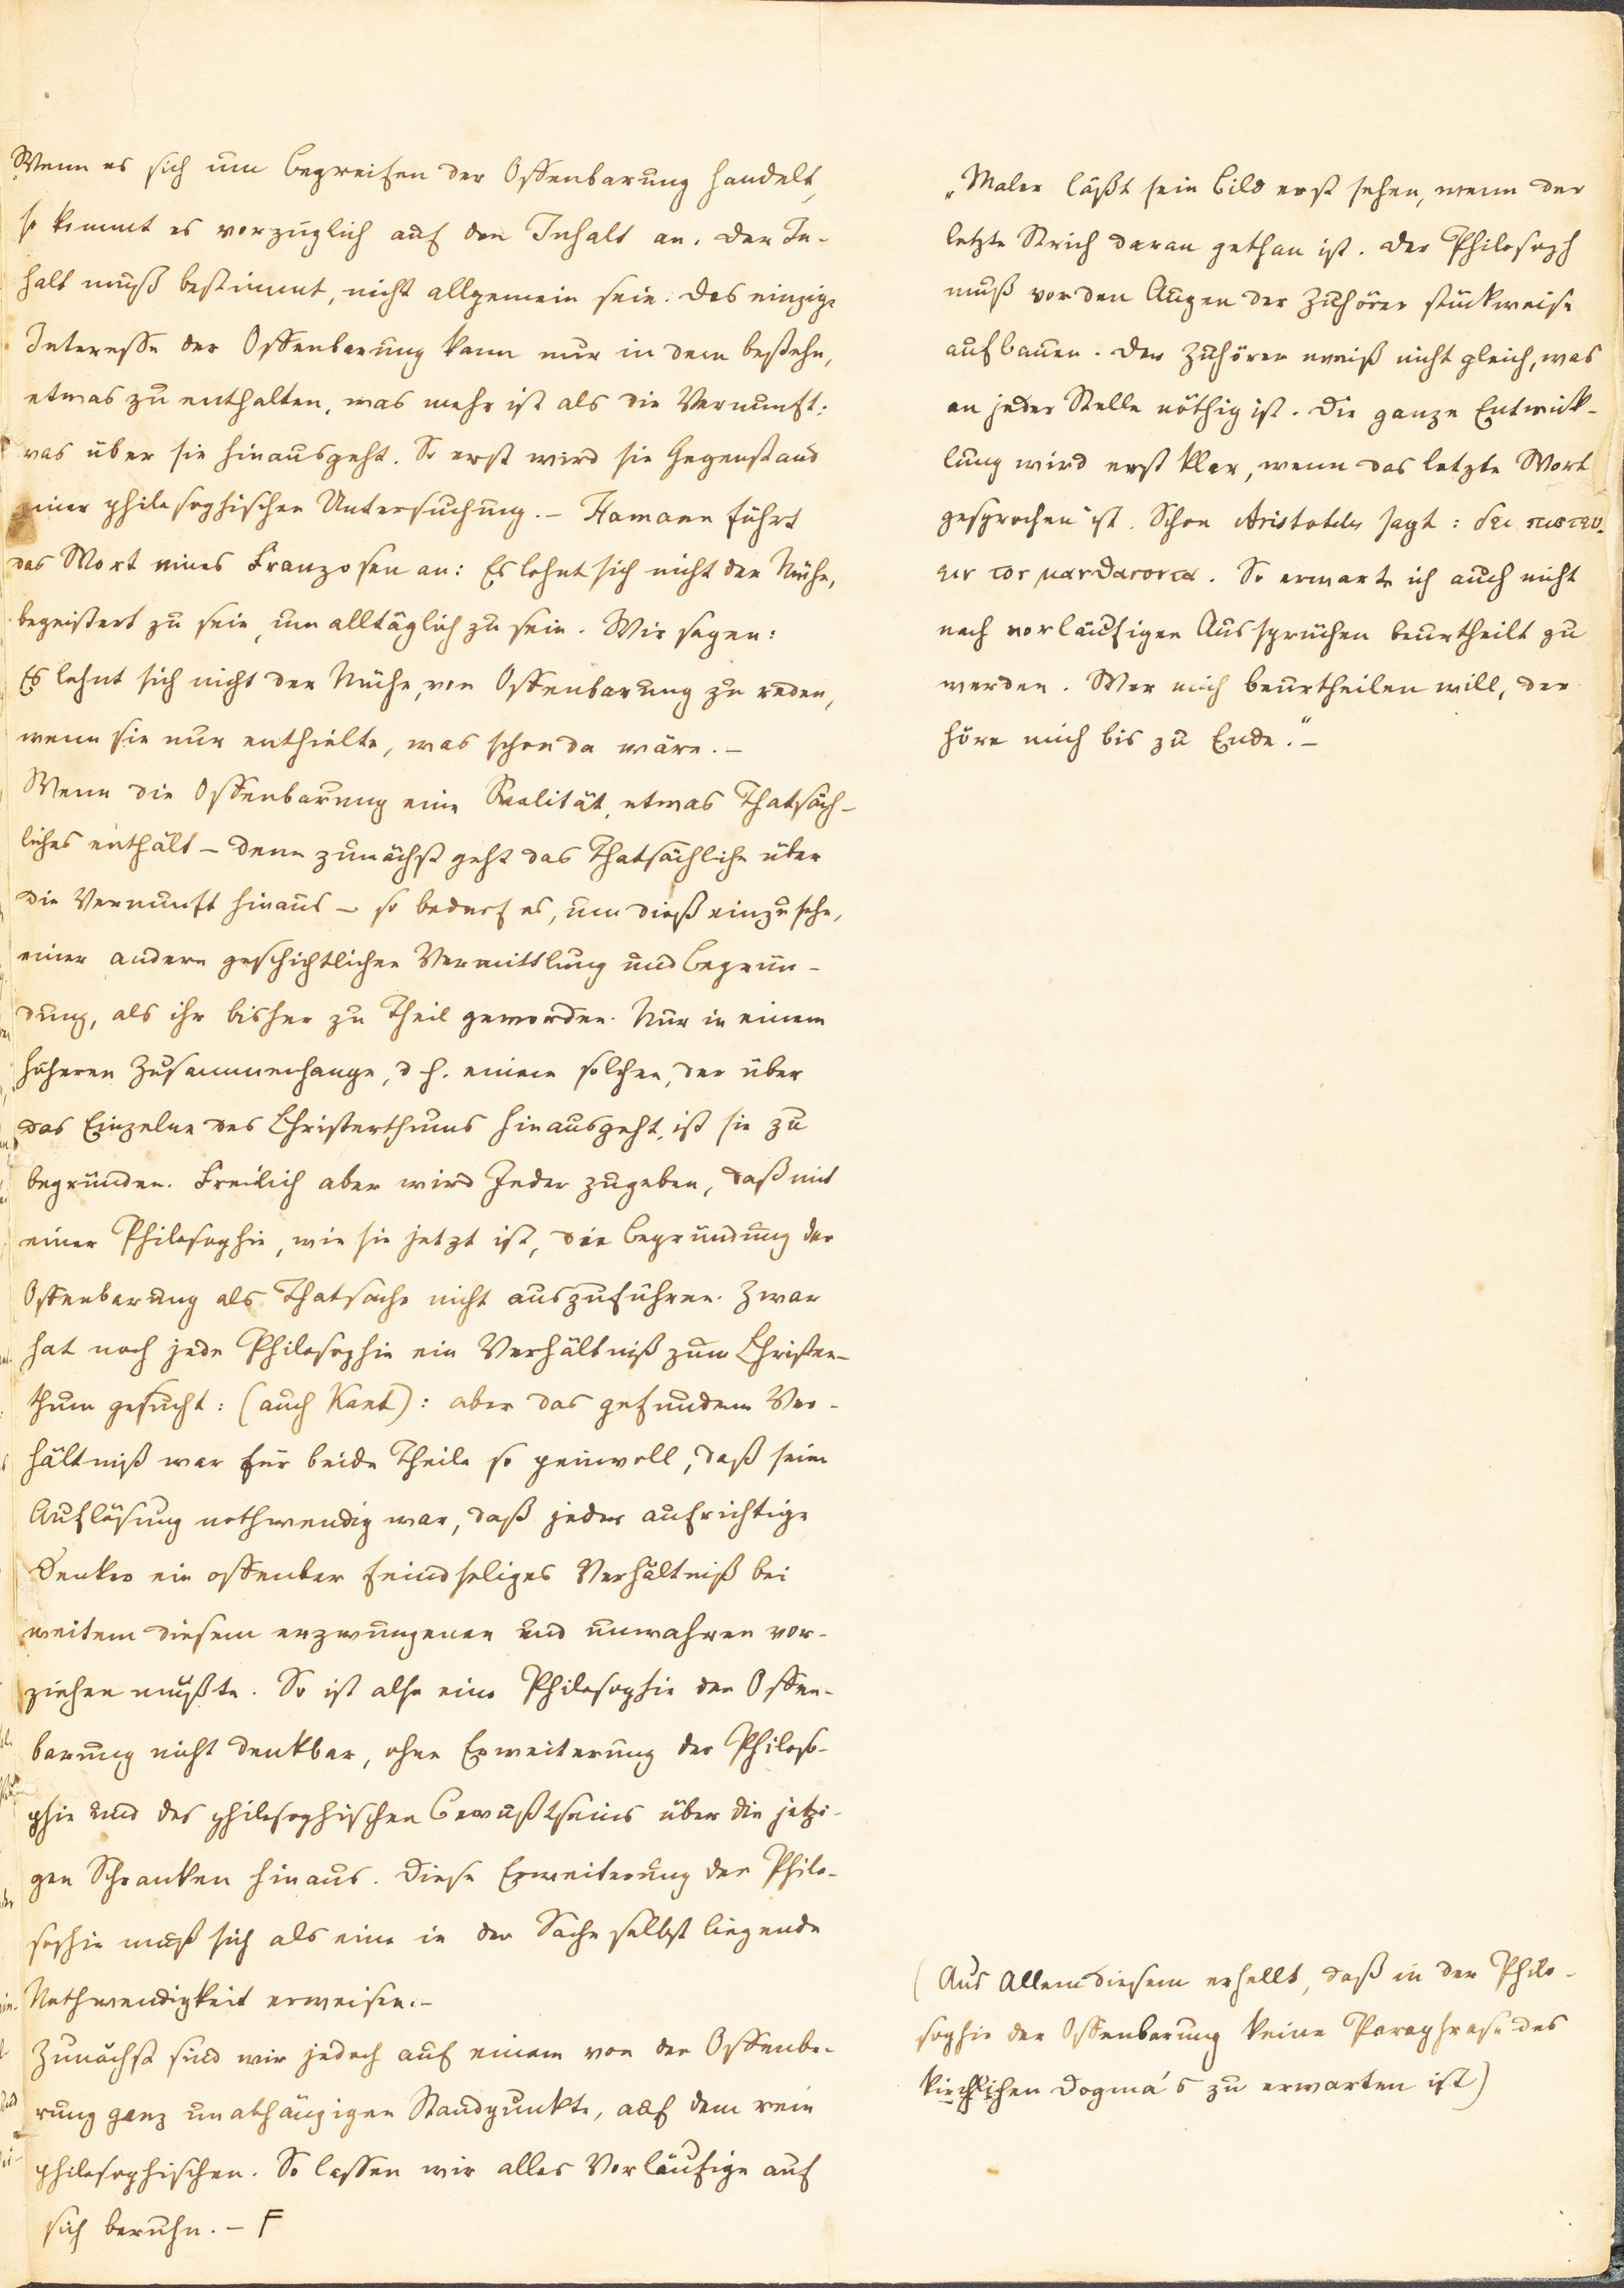 Wenn es sich um Begreifen der Offenbarung handelt,
so kommt es vorzüglich auf den Inhalt an. Der In-
halt muß bestimmt, nicht allgemein sein. Das einzige
Interesse der Offenbarung kann nur in dem bestehn,
etwas zu enthalten, was mehr ist als die Vernunft:
was über sie hinausgeht. So erst wird sie Gegenstand
einer philosophischen Untersuchung. – Hamann führt
das Wort eines Franzosen an: Es lohnt sich nicht der Mühe,
begeistert zu sein, um alltäglich zu sein. Wir sagen:
Es lohnt sich nicht der Mühe, von Offenbarung zu reden,
wenn sie nur enthielte, was schon da wäre. –
Wenn die Offenbarung eine Realität, etwas Thatsäch-
liches enthält – denn zunächst geht das Thatsächliche über
die Vernunft hinaus – so bedarf es, um dieß einzusehn,
einer andern geschichtlichen Vermittlung und Begrün-
dung, als ihr bisher zu Theil geworden. Nur in einem
höheren Zusammenhange, d. h. einem solchen, der über
das Einzelne des Christenthums hinausgeht, ist sie zu
begründen. Freilich aber wird Jeder zugeben, daß mit
einer Philosophie, wie sie jetzt ist, die Begründung der
Offenbarung als Thatsache nicht auszuführen. Zwar
hat noch jede Philosophie ein Verhältniß zum Christen-
thum gesucht: (auch Kant): aber das gefundene Ver-
hältniß war für beide Theile so peinvoll, daß seine
Auflösung nothwendig war, daß jeder aufrichtige
Denker ein offenbar feindseliges Verhältniß bei
weitem diesem erzwungenen und unwahren vor-
ziehen mußte. So ist also eine Philosophie der Offen-
barung nicht denkbar, ohne Erweiterung der Philoso-
phie und des philosophischen Bewußtseins über die jetzi-
gen Schranken hinaus. Diese Erweiterung der Philo-
sophie muß sich als eine in der Sache selbst liegende
Nothwendigkeit erweisen. –
Zunächst sind wir jedoch auf einem von der Offenba-
rung ganz unabhängigen Standpunkte, auf dem rein
philosophischen. So lassen wir alles Vorläufige auf
sich beruhn. – F
„Maler läßt sein Bild erst sehen, wenn der
letzte Strich daran gethan ist. Der Philosoph
muß vor den Augen der Zuhörer stückweise
aufbauen. Der Zuhörer weiß nicht gleich, was
an jeder Stelle nöthig ist. Die ganze Entwick-
lung wird erst klar, wenn das letzte Wort
gesprochen ist. Schon Aristoteles sagt: δει πιστευ-
ειν τον μανθανοντα. So erwarte ich auch nicht
nach vorläufigen Aussprüchen beurtheilt zu
werden. Wer mich beurtheilen will, der
höre mich bis zu Ende.“ –
(Aus Allem diesem erhellt, daß in der Philo-
sophie der Offenbarung keine Paraphrase des
kirchlichen Dogma's zu erwarten ist)